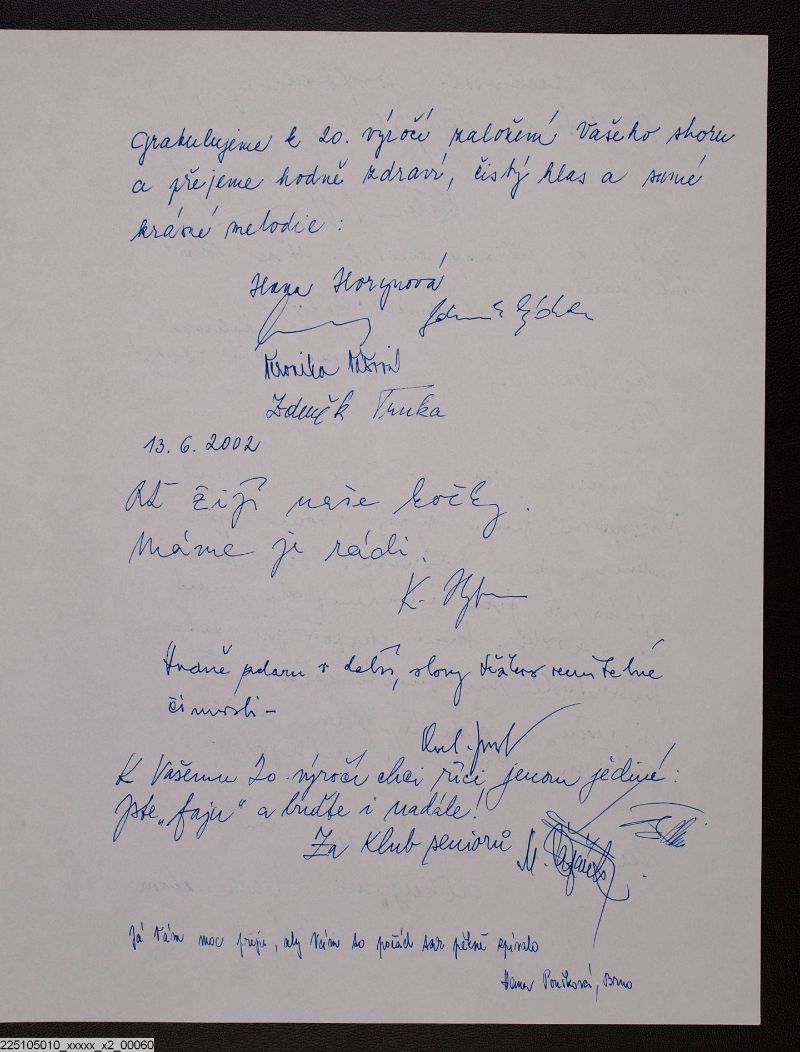 Gratulujeme k 20. výročí založení Vašeho sboru
a přejeme hodně zdraví, čistý hlas a samé
krásné melodie :
Hana Horynová
Zdeněk
Veronika
Zdeněk Trnka
13. 6. 2002
Ať žijí naše kočky.
Máme je rádi.
K.
Hodně zdaru v další, slovy těžko
činnosti –
K Vašemu 20. výročí chci říci jenom jediné :
Jste „fajn“ a buďte i nadále!
Za Klub seniorů M.
Já Vám moc přeju, aby Vám to pořád tak pěkně zpívalo
Hana Poučková, Brno
225105010_xxxxx_x2_00060